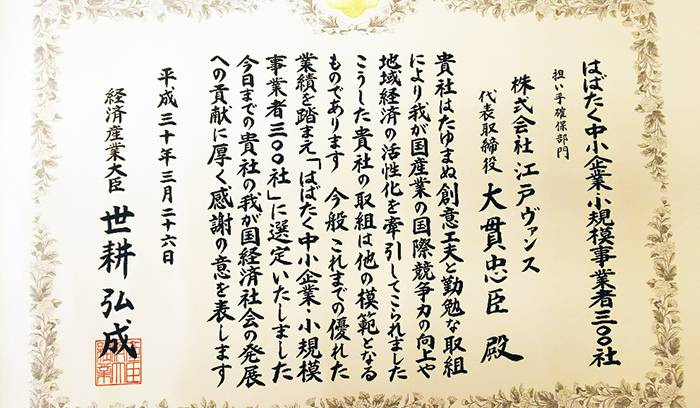 はばたく中小企業・小規模事業者三〇〇社
担い手確保部門
株式会社 江戸ヴァンス
代表取締役 大貫忠臣 殿
貴社はたゆまぬ創意工夫と勤勉な取組
により我が国産業の国際競争力の向上や
地域経済の活性化を牽引してこられました
こうした貴社の取組は他の模範となる
ものであります 今般 これまでの優れた
業績を踏まえ「はばたく中小企業・小規模
事業者三〇〇社」に選定いたしました
今日までの貴社の我が国経済社会の発展
への貢献に厚く感謝の意を表します
平成三十年三月二十六日
経済産業大臣 世耕弘成